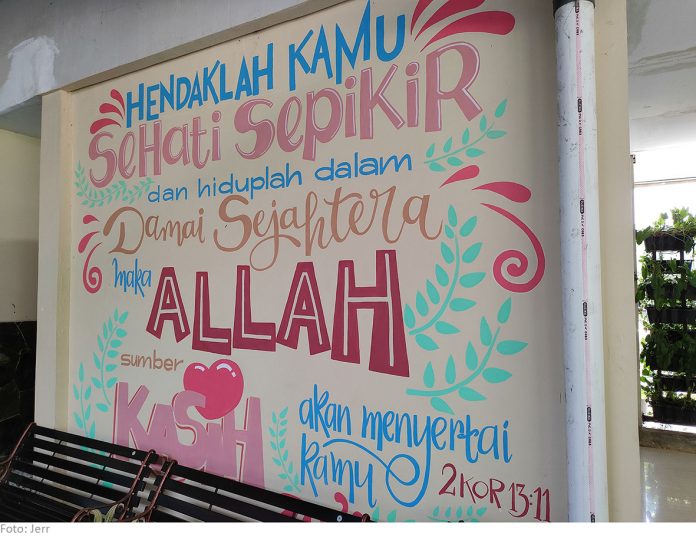 HENDAKLAH KAMU
SeHati SePiKiR
dan hiduplah dalam
Damai Sejahtera
maka
ALLAH
sumber
KASiH
akan menyertai
kamu
2 KOR 13:11
Foto: Jerr